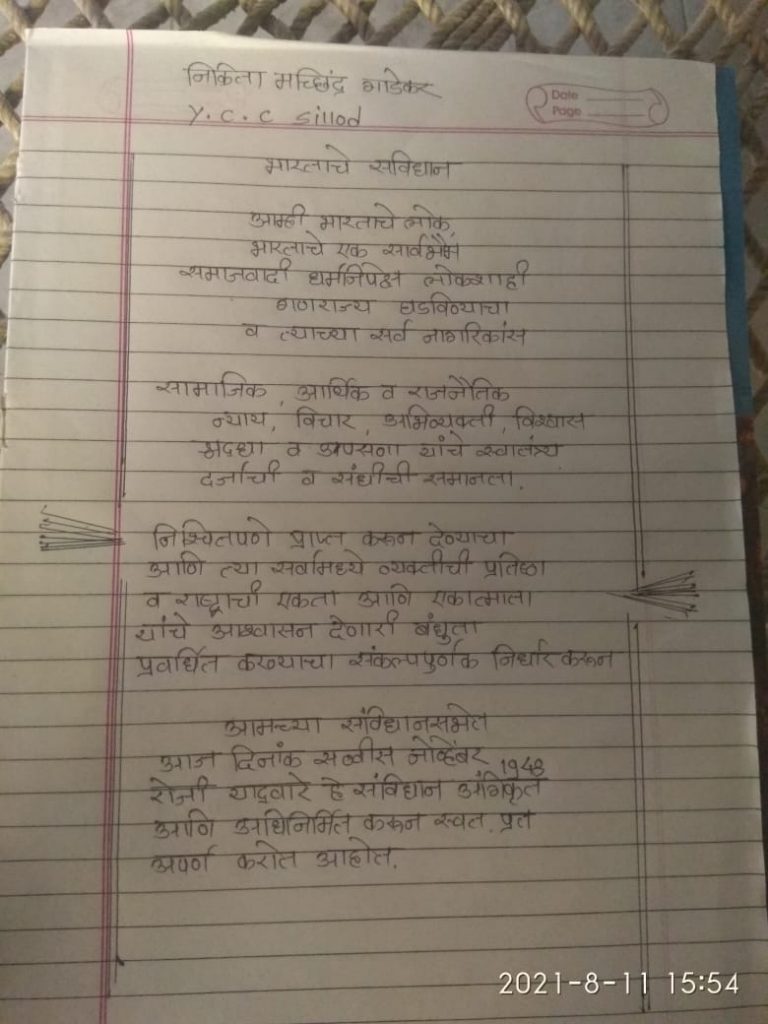 निकिता मच्छिंद्र गाडेकर
Y. C. C Sillod
Date
Page
भारताचे सविधान
आम्ही भारताचे लोक,
भारताचे एक सार्वभौम
समाजवादी धर्मनिपेक्ष लोकशाही
गणराज्य घडविण्याचा
व त्याच्या सर्व नागरिकांस
सामाजिक, आर्थिक व राजनैतिक
न्याय, विचार, अभिव्यक्ती, विश्वास
श्रद्धा व उपासना यांचे स्वातंत्र्य
दर्जाची व संधीची समानता.
निश्चितपणे प्राप्त करून देण्याचा
आणि त्या सर्वामध्ये व्यक्तीची प्रतिष्ठा
व राष्ट्राची एकता आणि एकात्माता
यांचे आश्वासन देणारी बंधुता
प्रवर्धित करण्याचा संकल्पपुर्णक निर्धार करून
आमच्या संविधानसभेत
आज दिनांक सव्वीस नोव्हेंबर 1948
रोजी याद्वारे हे संविधान अंगिकृत
आणि अधिनिर्मित करून स्वत. प्रत
अपर्ण करीत आहोत.
2021-8-11 15:54